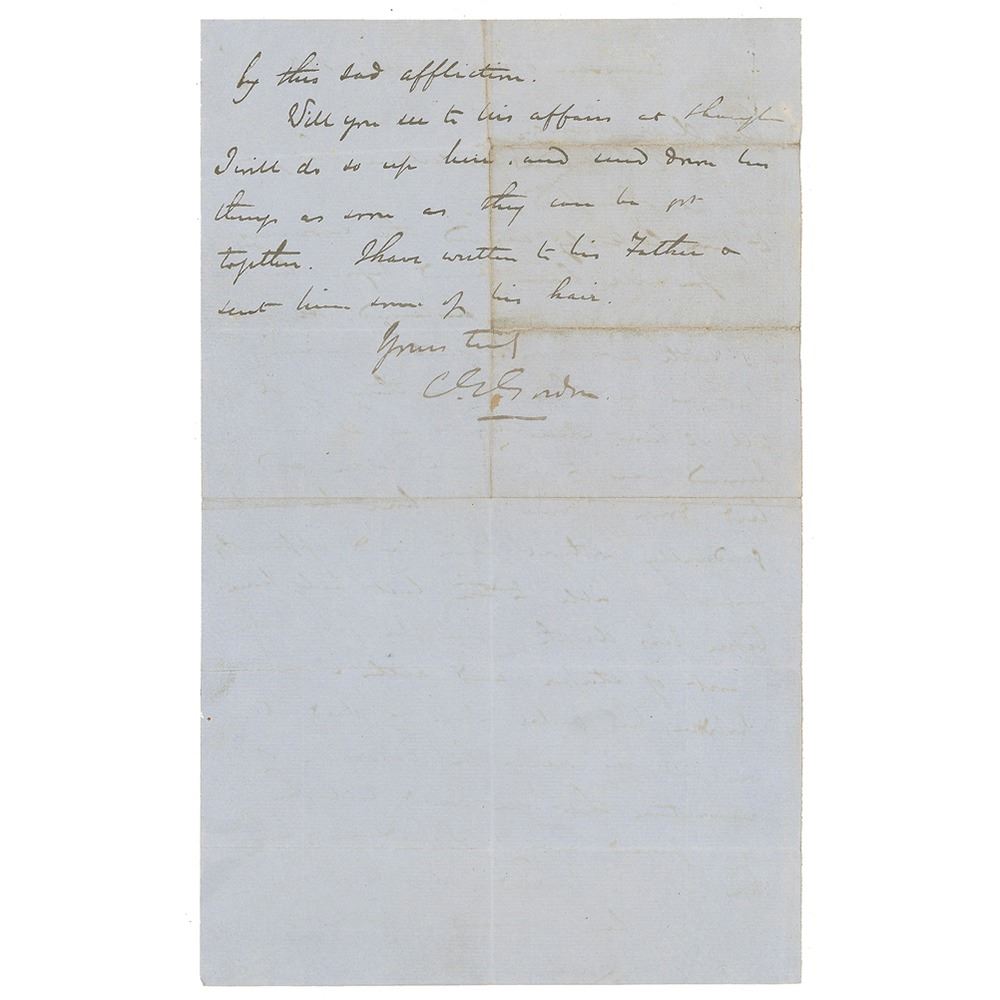 by this sad affliction.
Will you see to his affairs at Shanghai
I will do so up here, and send down his
things as soon as they can be got
together. I have written to his Father &
sent him some of his hair.
Yours truly
C G Gordon.